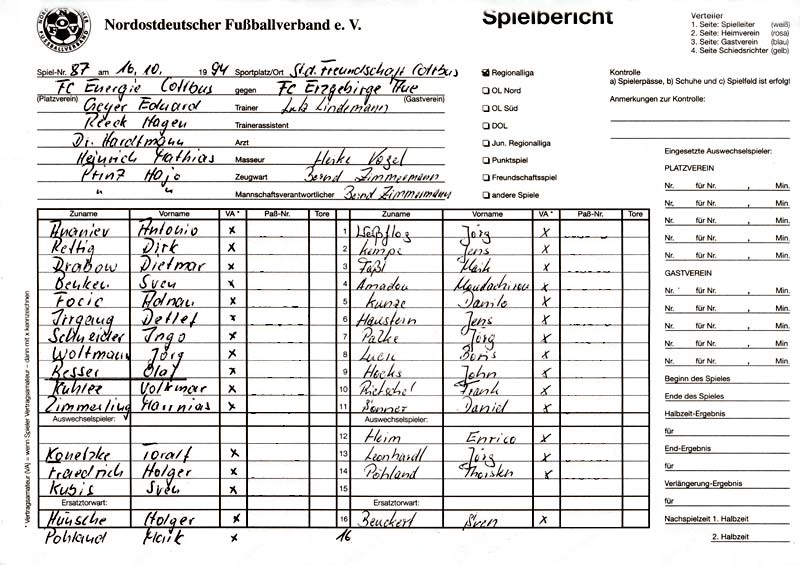 Nordostdeutscher Fußballverband e. V.
Spielbericht
Verteiler
1. Seite: Spielleiter (weiß)
2. Seite: Heimverein (rosa)
3. Seite: Gastverein (blau)
4. Seite Schiedsrichter (gelb)
Spiel-Nr. 87 am 16.10. 1994 Sportplatz/Ort St.d. Freundschaft Cottbus
FC Energie Cottbus gegen FC Erzgebirge Aue
(Platzverein) (Gastverein)
Geyer Eduard Trainer Lutz Lindemann
Reeck Hagen Trainerassistent
Dr. Hardtmann Arzt
Heinrich Mathias Masseur Heike Vogel
Prinz Hajo Zeugwart Bernd Zimmermann
" " Mannschaftsverantwortlicher Bernd Zimmermann
Regionalliga
OL Nord
OL Süd
DOL
Jun. Regionalliga
Punktspiel
Freundschaftsspiel
andere Spiele
Kontrolle
a) Spielerpässe, b) Schuhe und c) Spielfeld ist erfolgt
Anmerkungen zur Kontrolle:
Zuname Vorname VA * Paß-Nr. Tore Zuname Vorname VA * Paß-Nr. Tore
Ananiev Antonio x 1 Weißflog Jörg x
Rettig Dirk x 2 Kempe Jens x
Drabow Dietmar x 3 Faßl Maik x
Benken Sven x 4 Amadou Moudachirou x
Focic Adnan x 5 Kunze Danilo x
Irrgang Detlef x 6 Haustein Jens x
Schneider Ingo x 7 Palke Jörg x
Woltmann Jörg x 8 Lucic Boris x
Besser Olaf x 9 Hocks John x
Kuhlee Volkmar x 10 Rietschel Frank x
Zimmerling Matthias x 11 Bonner Daniel x
Auswechselspieler: Auswechselspieler:
12 Heim Enrico x
Konetzke Toralf x 13 Leonhardt Jörg x
Friedrich Holger x 14 Pohland Thorsten x
Kubis Sven x 15
Ersatztorwart: Ersatztorwart:
Hünsche Holger x 16 Beuckert Sven x
Pohland Maik x 16
* Vertragsamateur (VA) = wenn Spieler Vertragsamateur – dann mit x kennzeichnen
Eingesetzte Auswechselspieler:
PLATZVEREIN
Nr. für Nr. , Min.
Nr. für Nr. , Min.
Nr. für Nr. , Min.
Nr. für Nr. , Min.
Nr. für Nr. , Min.
GASTVEREIN
Nr. für Nr. , Min.
Nr. für Nr. , Min.
Nr. für Nr. , Min.
Nr. für Nr. , Min.
Nr. für Nr. , Min.
Beginn des Spieles
Ende des Spieles
Halbzeit-Ergebnis
für
End-Ergebnis
für
Verlängerung-Ergebnis
für
Nachspielzeit 1. Halbzeit
2. Halbzeit